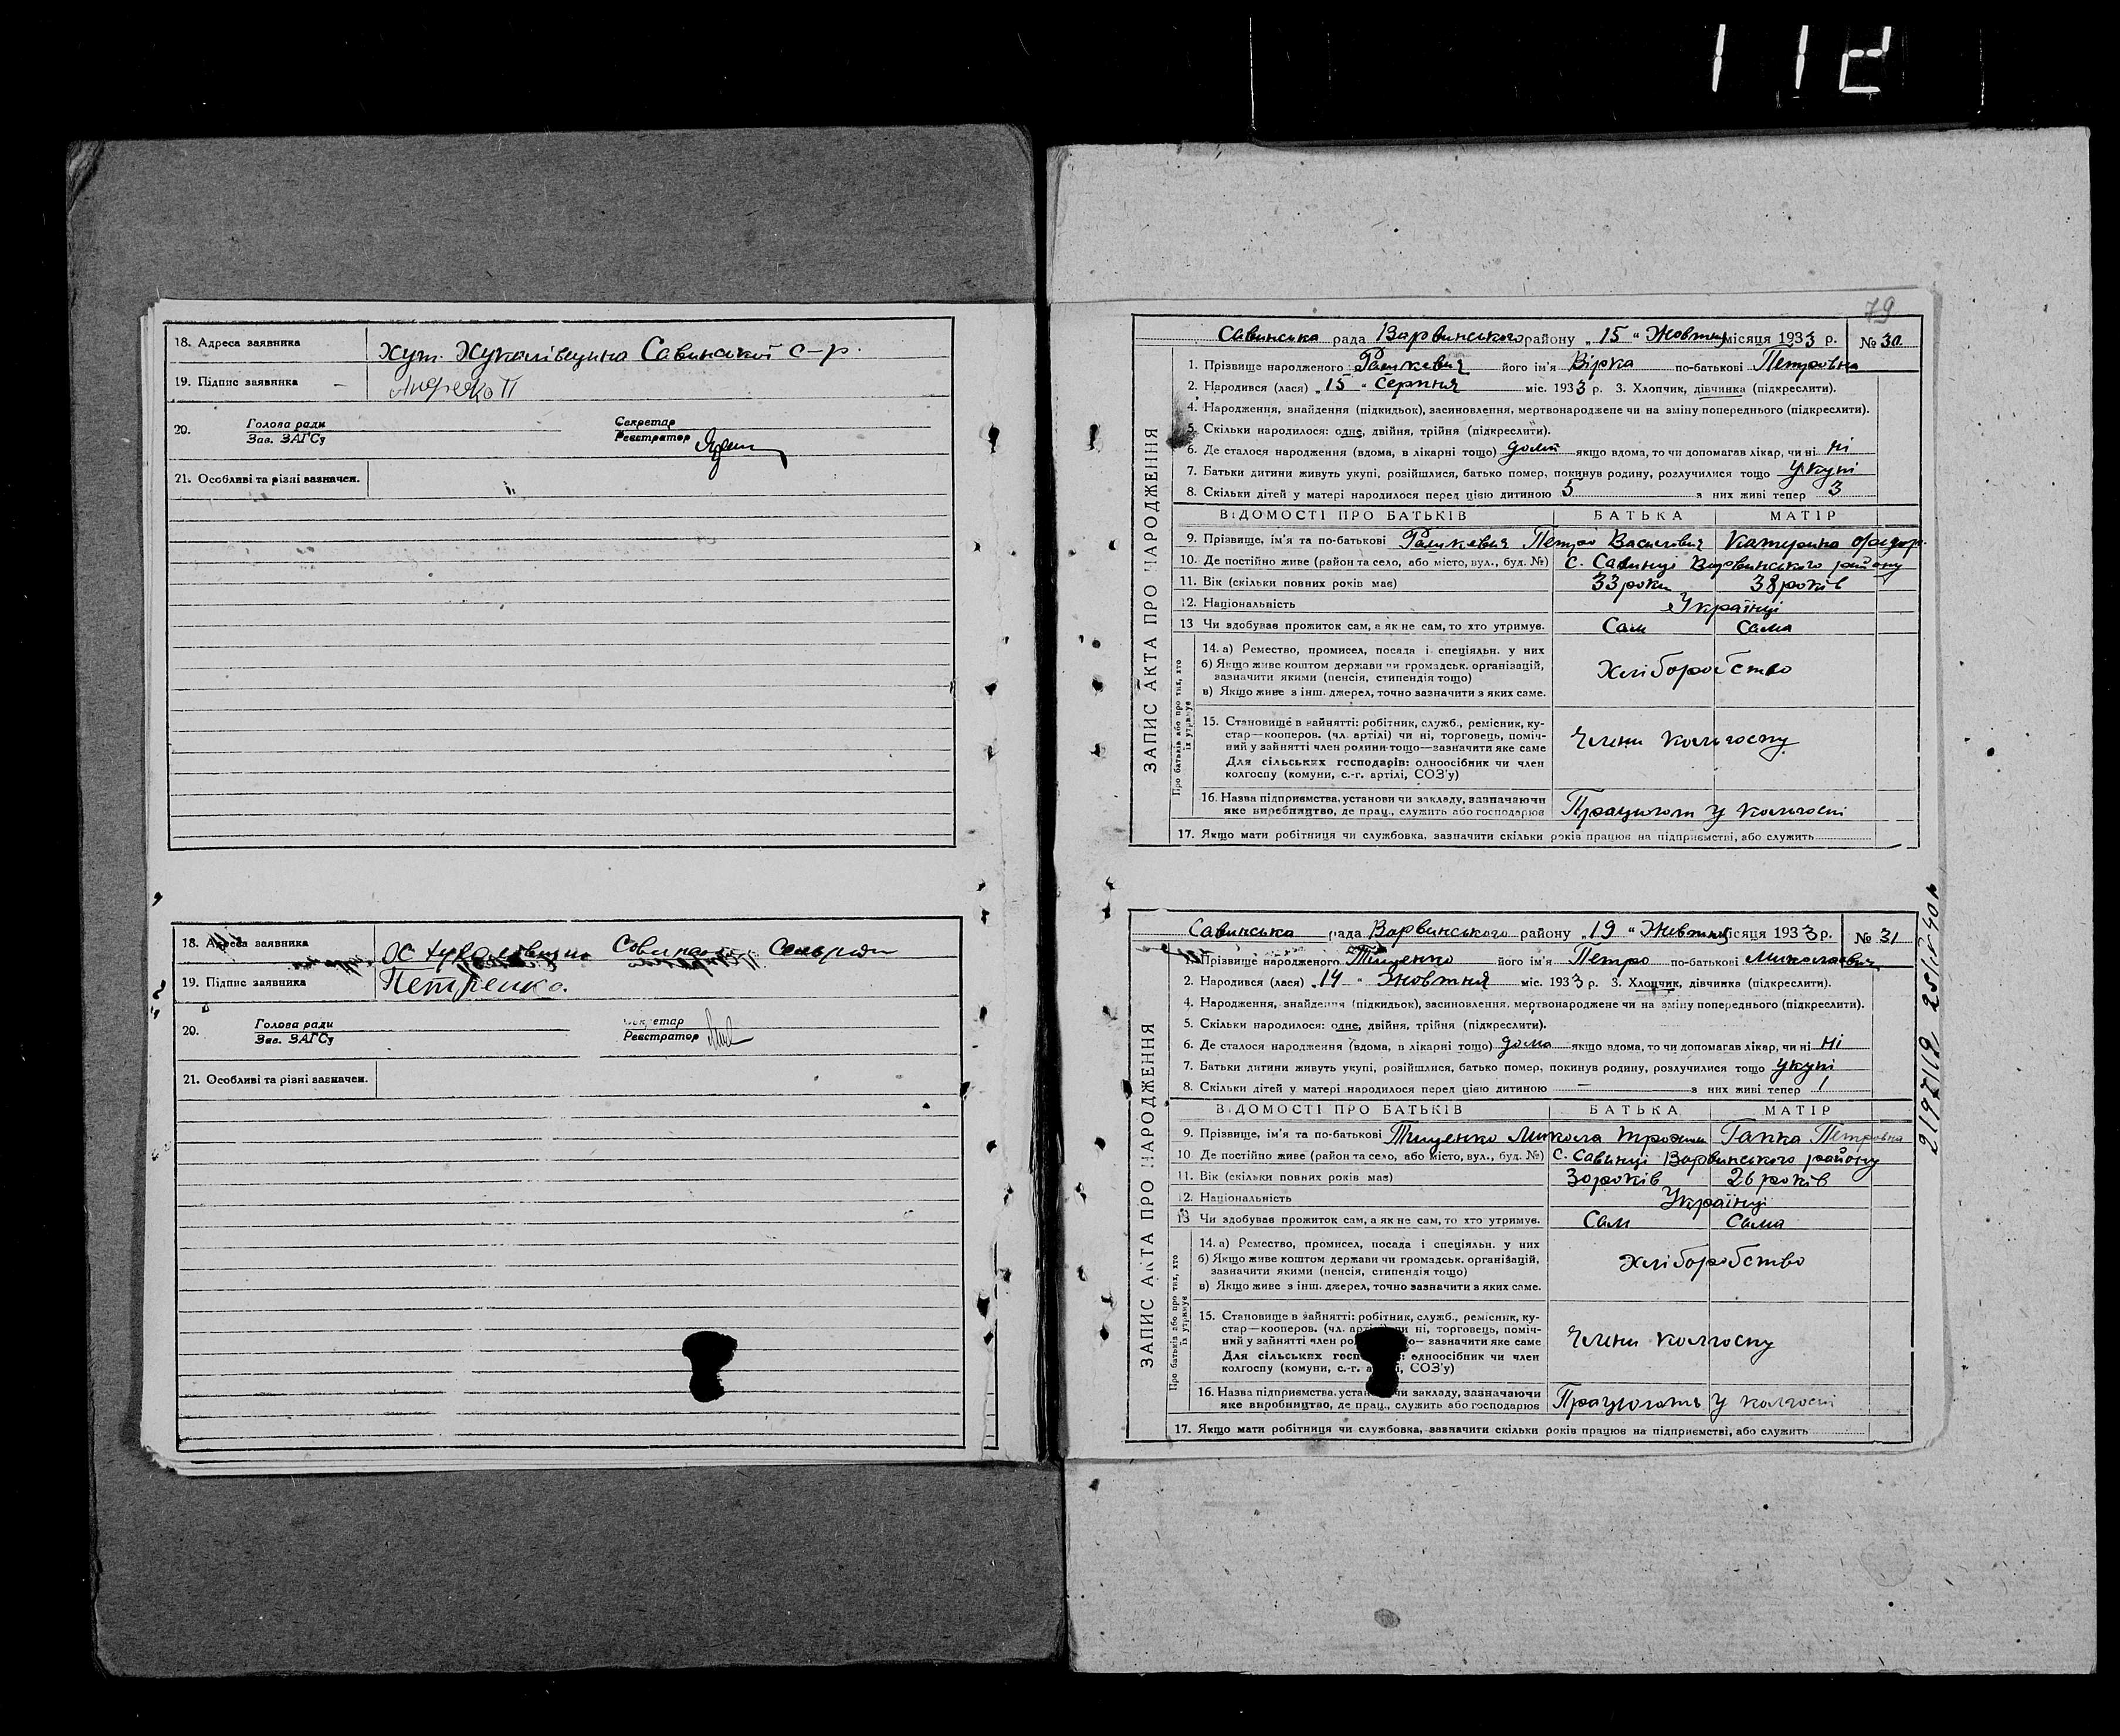 112
18. Адреса заявника хут. Жукалівщина Савинської с-р.
19. Підпис заявника – Андрейко П
20. Голова ради Секретар
Зав. ЗАГСу Реєстратор
21. Особливі та різні зазначен.
18. Адреса заявника
19. Підпис заявника Петренко.
20. Голова ради Секретар
Зав. ЗАГСу Реєстратор
21. Особливі та різні зазначен.
79
Савинська рада Варвинського району „15“ Жовтня місяця 1933 р. № 30
ЗАПИС АКТА ПРО НАРОДЖЕННЯ
1. Прізвище народженого його ім'я Вірка по-батькові Петровна
2. Народився (лася) „15“ Серпня міс. 1933 р. 3. Хлопчик, дівчинка (підкреслити).
4. Народження, знайдення (підкидьок), засиновлення, мертвонароджене чи на зміну попереднього (підкреслити).
5. Скільки народилося: одне, двійня, трійня (підкреслити).
6. Де сталося народження (вдома, в лікарні тощо) дома якщо вдома, то чи допомагав лікар, чи ні ні
7. Батьки дитини живуть укупі, розійшлися, батько помер, покинув родину, розлучилися тощо укупі
8. Скільки дітей у матері народилося перед цією дитиною 5 з них живі тепер 3
ВІДОМОСТІ ПРО БАТЬКІВ БАТЬКА МАТІР
9. Прізвище, ім'я та по-батькові Петро Василович Катерина Федор.
10. Де постійно живе (район та село, або місто, вул., буд. №) с. Савинці Варвинського району
11. Вік (скільки повних років має) 33 роки 38 років
12. Національність Українці
13 Чи здобував прожиток сам, а як не сам, то хто утримує. Сам Сама
Про батьків або про тих, хто їх утримує
14. а) Ремество, промисел, посада і спеціяльн. у них
б) Якщо живе коштом держави чи громадськ. організацій,
зазначити якими (пенсія, стипендія тощо) Хліборобство
в) Якщо живе з інш. джерел, точно зазначити з яких саме.
15. Становище в зайнятті: робітник, служб., ремісник, ку-
стар—кооперов. (чл. артілі) чи ні, торговець, поміч-
ний у зайнятті член родини тощо—зазначити яке саме Члени колгоспу
Для сільських господарів: одноосібник чи член
колгоспу (комуни, с.-г. артілі, СОЗ'у)
16. Назва підприємства, установи чи закладу, зазначаючи
яке виробництво, де прац., служить або господарює Працюють у колгоспі
17. Якщо мати робітниця чи службовка, зазначити скільки років працює на підприємстві, або служить
Савинська рада Варвинського району „19“ Жовтня місяця 1933 р. № 31
ЗАПИС АКТА ПРО НАРОДЖЕННЯ
1. Прізвище народженого Тищенко його ім'я Петро по-батькові Миколаєвич
2. Народився (лася) „14“ Жовтня міс. 1933 р. 3. Хлопчик, дівчинка (підкреслити).
4. Народження, знайдення (підкидьок), засиновлення, мертвонароджене чи на зміну попереднього (підкреслити).
5. Скільки народилося: одне, двійня, трійня (підкреслити).
6. Де сталося народження (вдома, в лікарні тощо) дома якщо вдома, то чи допомагав лікар, чи ні ні
7. Батьки дитини живуть укупі, розійшлися, батько помер, покинув родину, розлучилися тощо укупі
8. Скільки дітей у матері народилося перед цією дитиною – з них живі тепер 1
ВІДОМОСТІ ПРО БАТЬКІВ БАТЬКА МАТІР
9. Прізвище, ім'я та по-батькові Тищенко Микола Трохим Гапка Петровна
10 Де постійно живе (район та село, або місто, вул., буд. №) с. Савинці Варвинського району
11. Вік (скільки повних років має) 30 років 26 років
12. Національність Українці
13 Чи здобував прожиток сам, а як не сам, то хто утримує. Сам Сама
Про батьків або про тих, хто їх утримує
14. а) Ремество, промисел, посада і спеціяльн. у них
б) Якщо живе коштом держави чи громадськ. організацій,
зазначити якими (пенсія, стипендія тощо) Хліборобство
в) Якщо живе з інш. джерел, точно зазначити з яких саме.
15. Становище в зайнятті: робітник, служб., ремісник, ку-
стар—кооперов. (чл. артілі) чи ні, торговець, поміч-
ний у зайнятті член зазначити яке саме Члени колгоспу
Для сільських одноосібник чи член
колгоспу (комуни, с.-г. СОЗ'у)
16. Назва підприємства, чи закладу, зазначаючи
яке виробництво, де прац., служить або господарює Працюють у колгоспі
17. Якщо мати робітниця чи службовка, зазначити скільки років працює на підприємстві, або служить